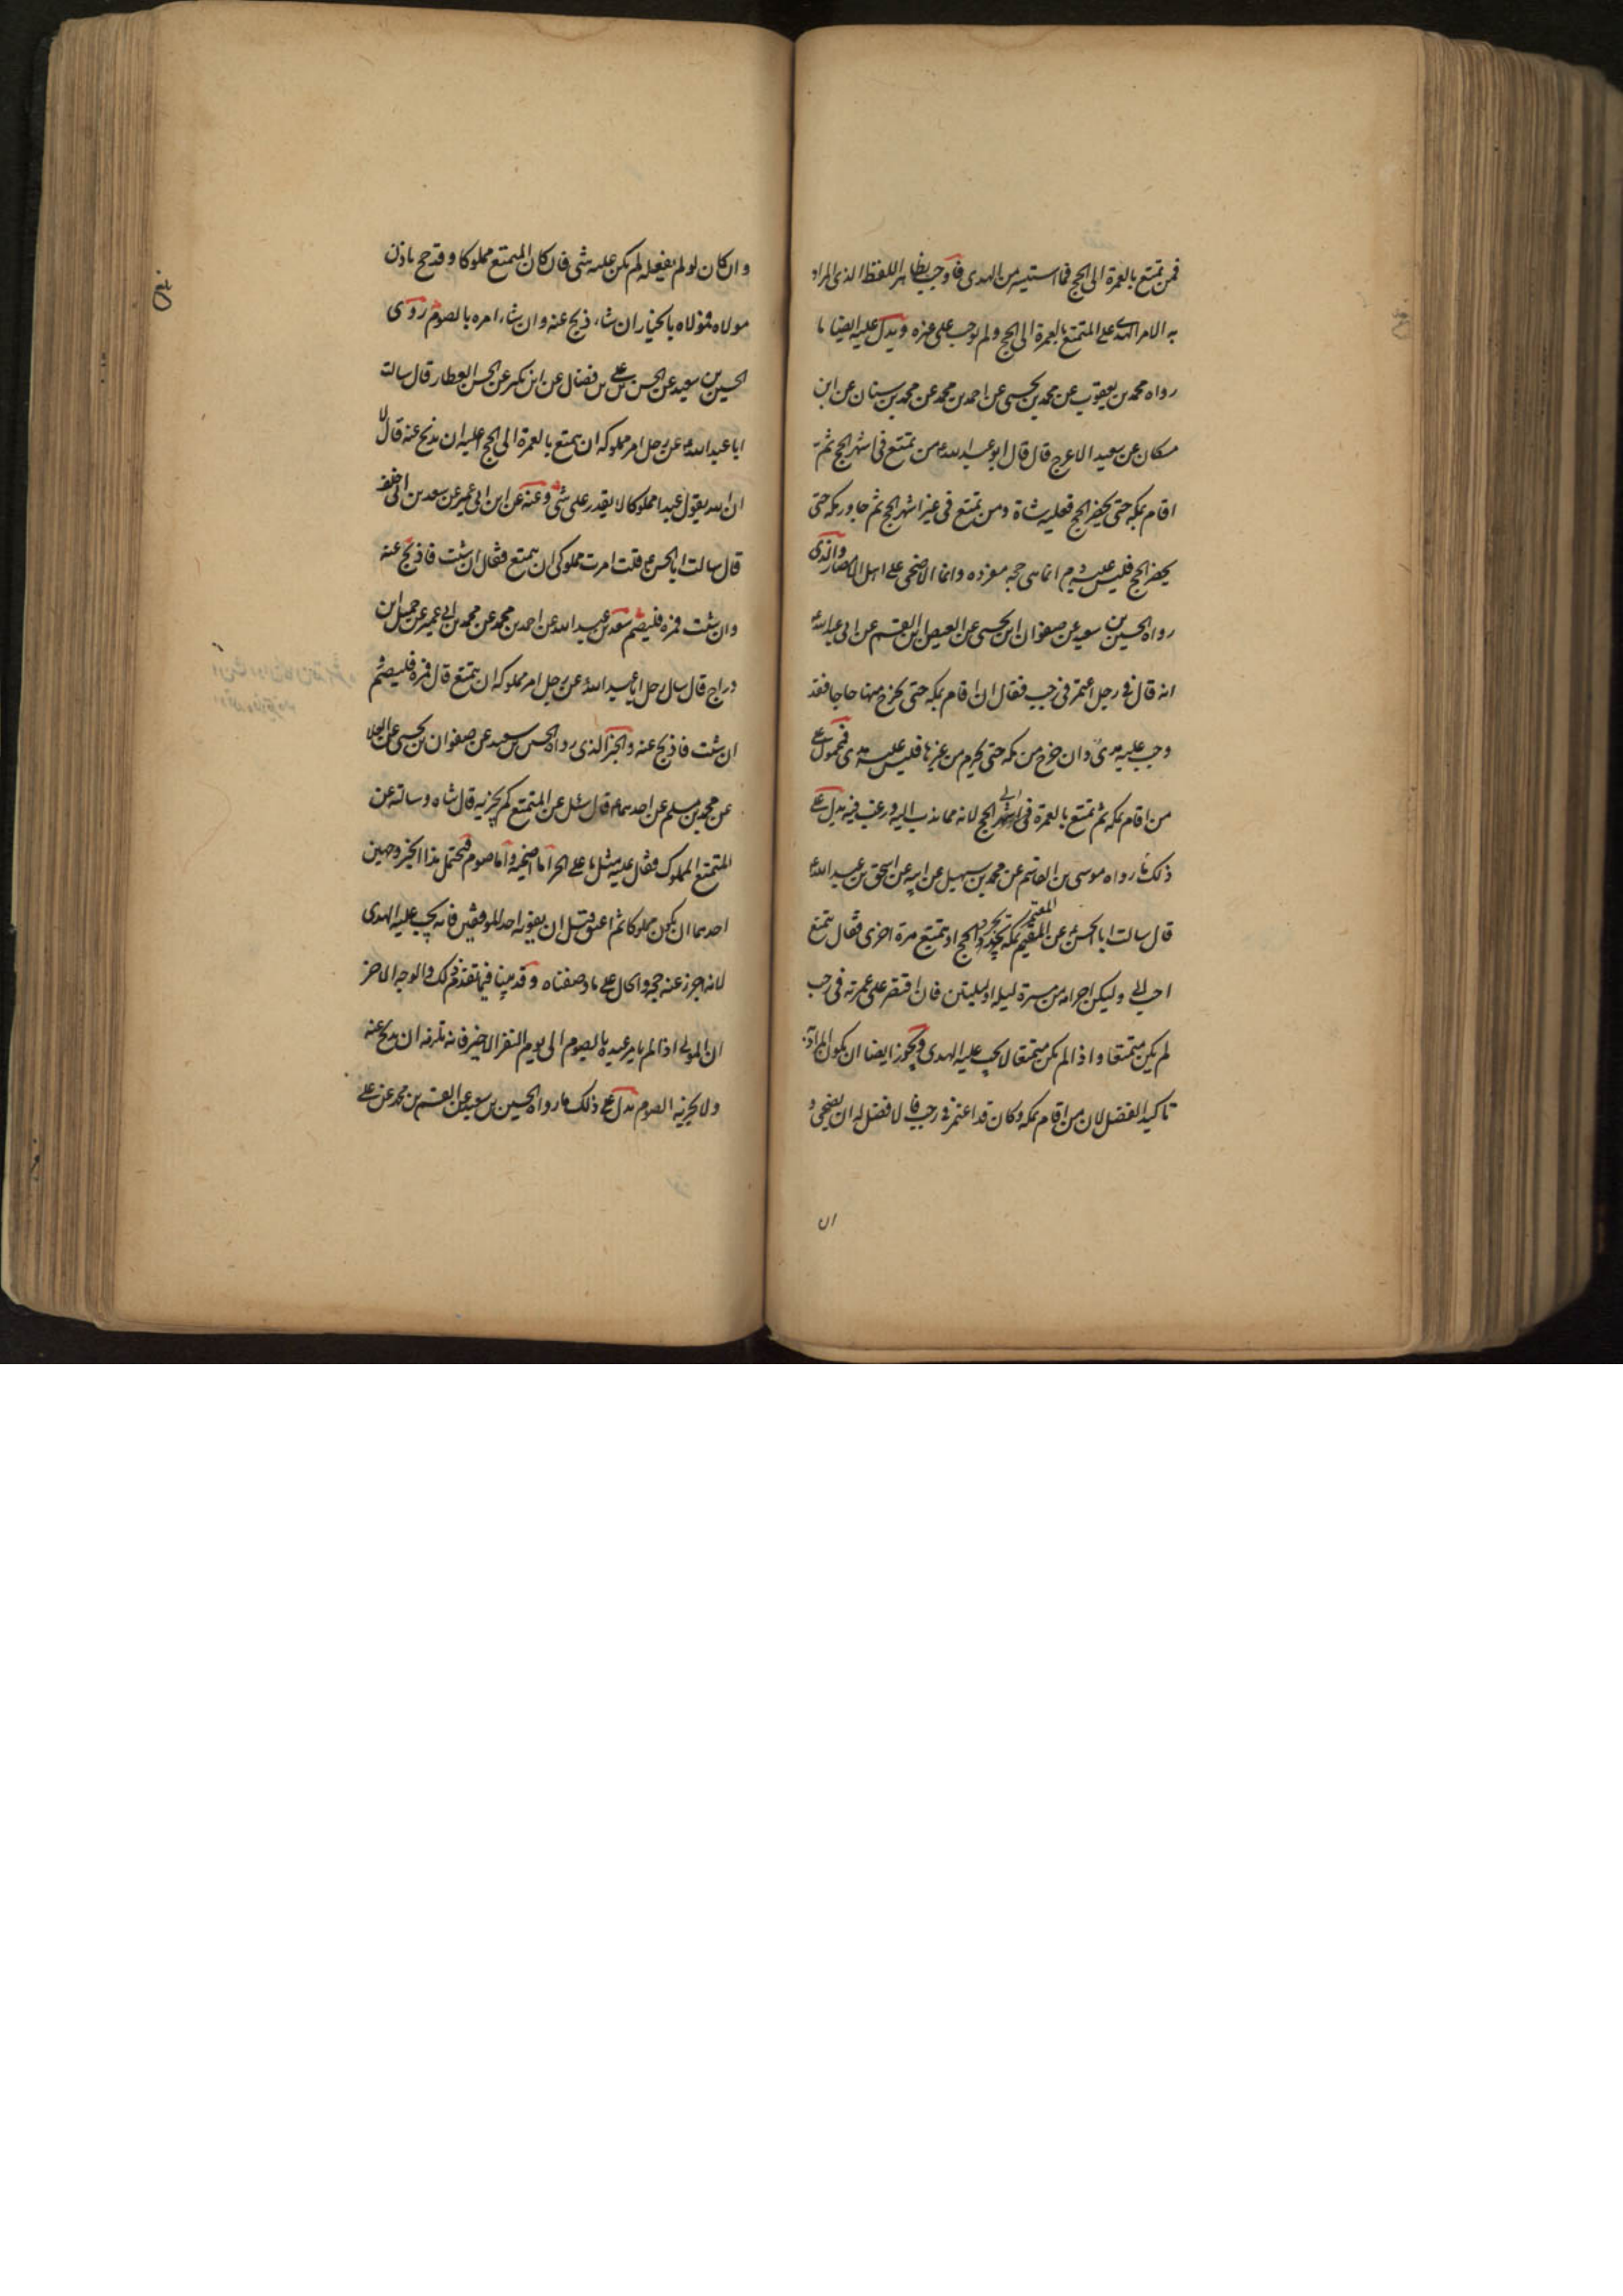 فمن تمتع بالعمرة الى الحج فما استيسر من الهدى فاوجب بظاهر اللفظ الذى المراد
به الامر الهدى على المتمتع بالعمرة الى الحج ولم يوجب على غيره ويدل عليه ايضا ما
رواه محمد بن يعقوب عن محمد بن يحيى عن احمد بن محمد عن محمد بن سنان عن ابن
مسكان عن سعيد الاعرج قال قال ابو عبد الله ع من تمتع فى اشهر الحج ثم
اقام بمكة حتى يحضر الحج فعليه شاة ومن تمتع فى غير اشهر الحج ثم جاور بمكة حتى
يحضر الحج فليس عليه دم انما هى حجة مفرده وانما الاضحى على اهل الامصار والذى
رواه الحسين بن سعيد عن صفوان ابن يحيى عن العيص ابن القسم عن ابى عبد الله ع
انه قال فى رجل اعتمر فى رجب فقال ان اقام بمكة حتى يخرج منها حاجا فقد
وجب عليه هدى وان خرج من مكة حتى يحرم من غيرها فليس عليه هدى فمحمول على
من اقام بمكة ثم تمتع بالعمرة فى اشهر الحج لانه مما ندب اليه ورغب فيه يدل على
ذلك ما رواه موسى بن القاسم عن محمد بن سهيل عن ابيه عن اسحق بن عبد الله ع
قال سالت ابا الحسن ع عن المقيم بمكة يجرد الحج او يتمتع مرة اخرى فقال يتمتع
المعتمر
احب الى وليكن احرامه من مسيرة ليلة او ليلتين فان اقتصر على عمرته فى رجب
لم يكن متمتعا واذا لم يكن متمتعا لا يجب عليه الهدى ويجوز ايضا ان يكون المراد به
تاكيد الفضل لان من اقام بمكة وكان قد اعتمر فى رجب فالافضل له ان يضحى و
ان
وان كان لو لم يفعله لم يكن عليه شى فان كان المتمتع مملوكا وقد حج باذن
مولاه فمولاه بالخيار ان شاء ذبح عنه وان شاء امره بالصوم روى
الحسين بن سعيد عن الحسن بن على بن فضال عن ابن بكير عن الحسن العطار قال سالت
ابا عبد الله ع عن رجل امر مملوكه ان يتمتع بالعمرة الى الحج اعليه ان يذبح عنه قال لا
ان الله يقول عبدا مملوكا لا يقدر على شى وعنه عن ابن ابى عمير عن سعد بن ابى خلف
قال سالت ابا الحسن ع قلت امرت مملوكى ان يتمتع فقال ان شئت فاذبح عنه
وان شئت فمره فليصم سعد بن عبد الله عن احمد بن محمد عن محمد بن ابى عمير عن جميل ابن
دراج قال سال رجل ابا عبد الله ع عن رجل امر مملوكه ان يتمتع قال فمره فليصم و
ان شئت فاذبح عنه والخبر الذى رواه الحسين بن سعيد عن صفوان بن يحيى عن العلا
عن محمد بن مسلم عن احدهما ع قال سئل عن المتمتع كم يجزيه قال شاه وسالته عن
المتمتع المملوك فقال عليه مثل ما على الحر اما اضحية واما صوم فيحتمل هذا الخبر وجهين
احدهما ان يكون مملوكا ثم اعتق قبل ان يفوته احد الموقفين فانه يجب عليه الهدى
لانه اجزء عنه حجه والحال على ما وصفناه وقد بينا فيما تقدم ذلك والوجه الاخر
ان المولى اذا لم يامر عبده بالصوم الى يوم النفر الاخير فانه تلزمه ان يذبح عنه
ولا يجزيه الصوم يدل على ذلك ما رواه الحسين بن سعيد عن القسم بن محمد عن على